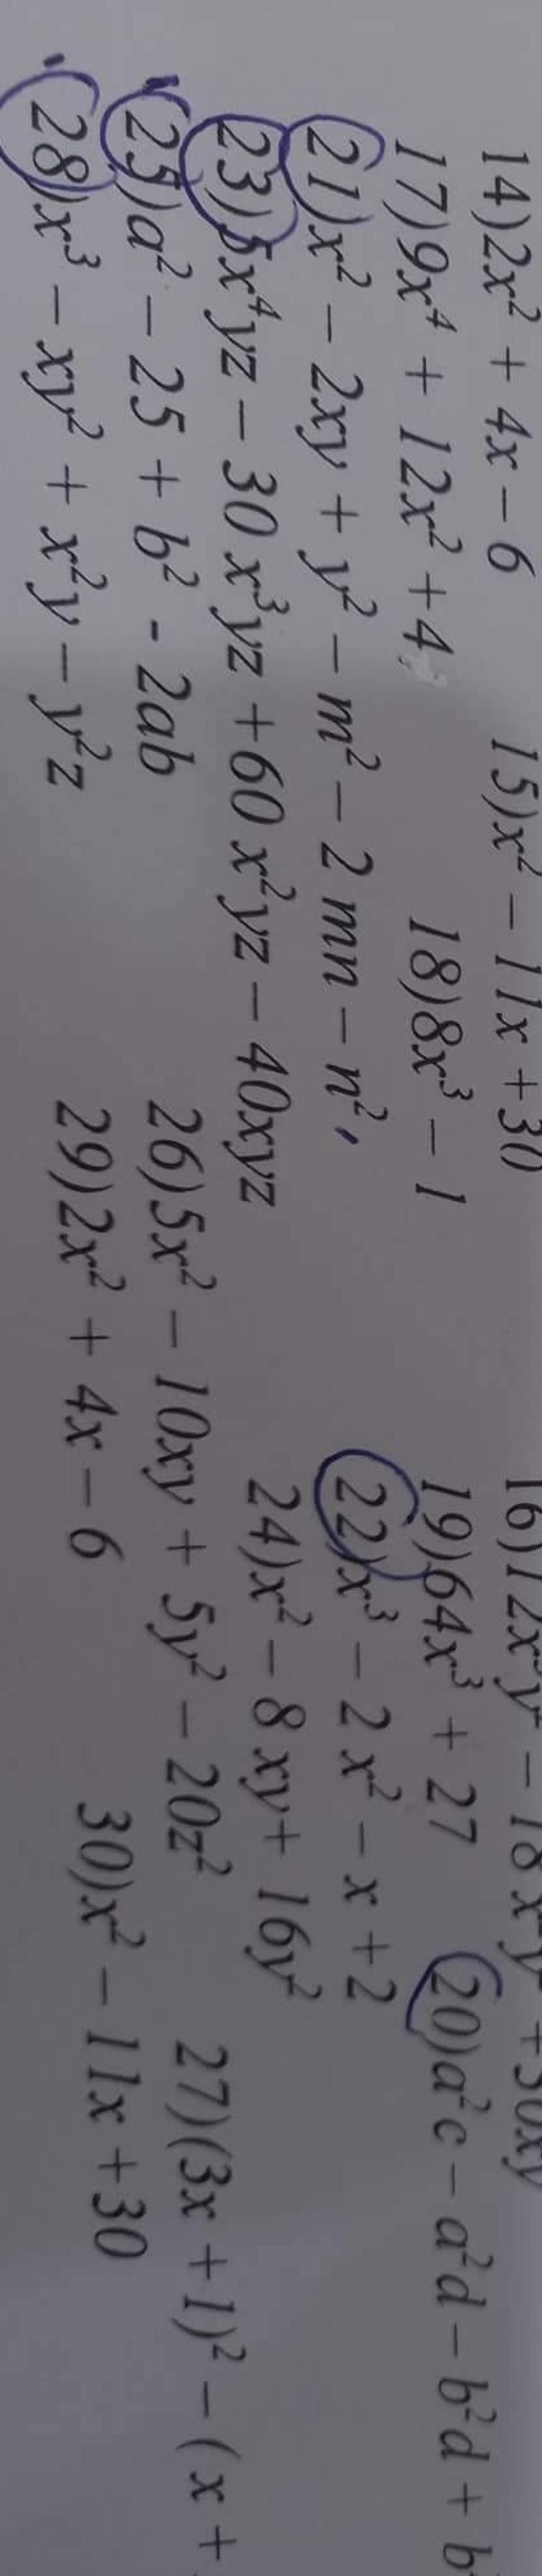 14)2x² + 4x − 6 15)x² − 11x + 30 16)12x
17)9x⁴ + 12x² + 4 18)8x³ − 1 19)64x³ + 27 20)a²c − a²d − b²d + b
21)x² − 2xy + y² − m² − 2 mn − n², 22)x³ − 2 x² − x + 2
23)5x⁴yz − 30 x³yz + 60 x²yz − 40xyz 24)x² − 8 xy + 16y²
25)a² − 25 + b² - 2ab 26)5x² − 10xy + 5y² − 20z² 27)(3x + 1)² − ( x +
28)x³ − xy² + x²y − y²z 29)2x² + 4x − 6 30)x² − 11x + 30